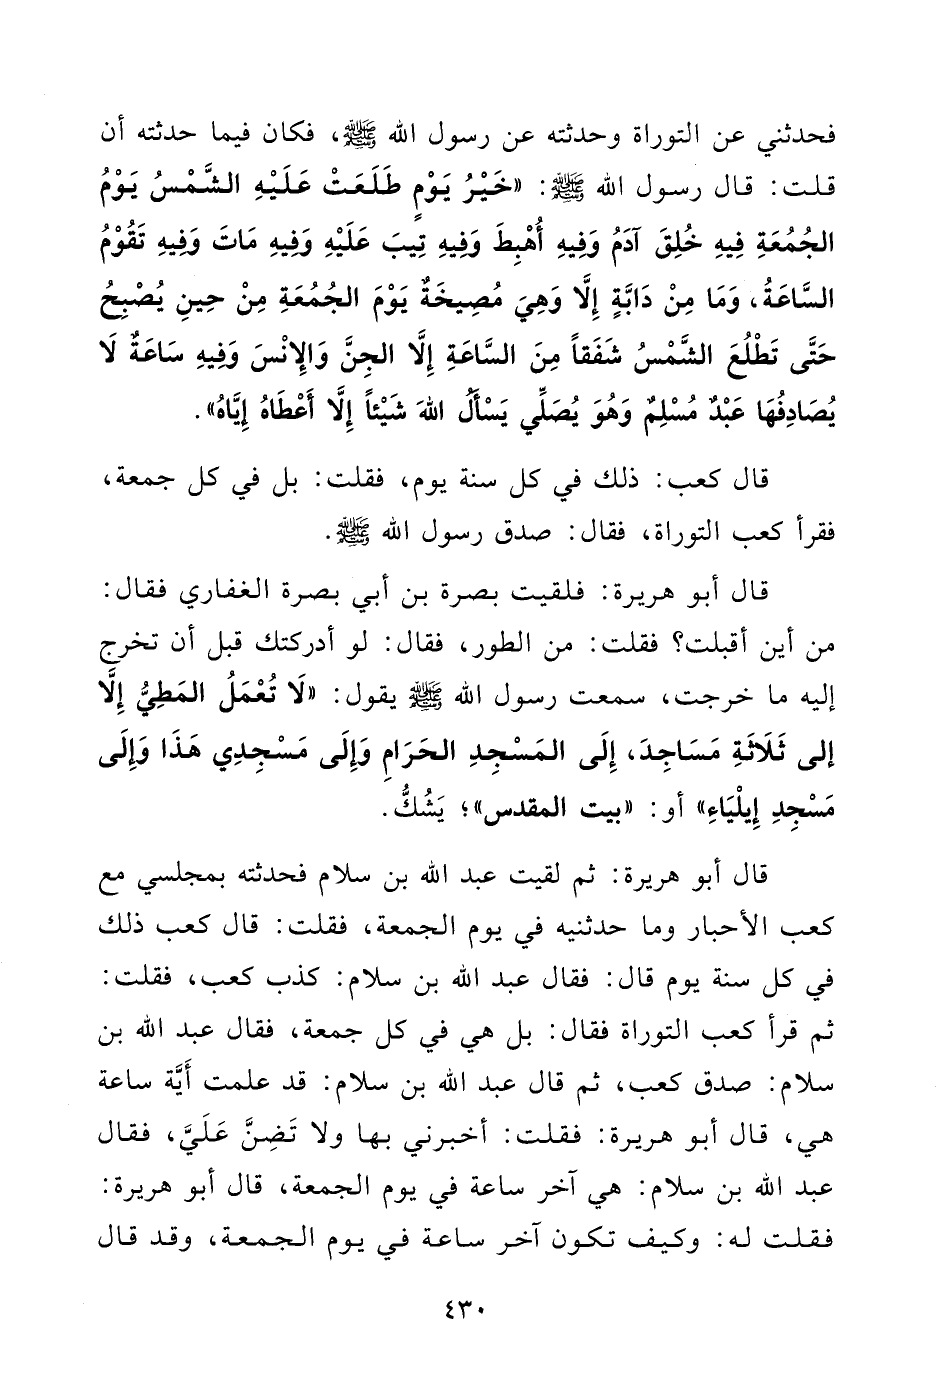 فحدثني عن التوراة وحدثته عن رسول الله ﷺ، فكان فيما حدثته أن
قلت: قال رسول الله ﷺ: «خَيْرُ يَوْمٍ طَلَعَتْ عَلَيْهِ الشَّمْسُ يَوْمُ
الجُمُعَةِ فِيهِ خُلِقَ آدَمُ وَفِيهِ أُهْبِطَ وَفِيهِ تِيبَ عَلَيْهِ وَفِيهِ مَاتَ وَفِيهِ تَقُوْمُ
السَّاعَةُ، وَمَا مِنْ دَابَّةٍ إِلَّا وَهِيَ مُصِيخَةٌ يَوْمَ الجُمُعَةِ مِنْ حِينِ يُصْبِحُ
حَتَّى تَطْلُعَ الشَّمْسُ شَفَقاً مِنَ السَّاعَةِ إِلَّا الجِنَّ وَالإِنْسَ وَفِيهِ سَاعَةٌ لَا
يُصَادِفُهَا عَبْدٌ مُسْلِمٌ وَهُوَ يُصَلِّي يَسْأَلُ اللهَ شَيْئاً إِلَّا أَعْطَاهُ إِيَّاهُ».
قال كعب: ذلك في كل سنة يوم، فقلت: بل في كل جمعة،
فقرأ كعب التوراة، فقال: صدق رسول الله ﷺ.
قال أبو هريرة: فلقيت بصرة بن أبي بصرة الغفاري فقال:
من أين أقبلت؟ فقلت: من الطور، فقال: لو أدركتك قبل أن تخرج
إليه ما خرجت، سمعت رسول الله ﷺ يقول: «لَا تُعْمَلُ المَطِيُّ إِلَّا
إلى ثَلَاثَةِ مَسَاجِدَ، إِلَى المَسْجِدِ الحَرَامِ وَإِلَى مَسْجِدِي هَذَا وَإِلَى
مَسْجِدِ إِيلْيَاءِ» أو: «بيت المقدس»؛ يَشُكُّ.
قال أبو هريرة: ثم لقيت عبد الله بن سلام فحدثته بمجلسي مع
كعب الأحبار وما حدثنيه في يوم الجمعة، فقلت: قال كعب ذلك
في كل سنة يوم قال: فقال عبد الله بن سلام: كذب كعب، فقلت:
ثم قرأ كعب التوراة فقال: بل هي في كل جمعة، فقال عبد الله بن
سلام: صدق كعب، ثم قال عبد الله بن سلام: قد علمت أَيَّة ساعة
هي، قال أبو هريرة: فقلت: أخبرني بها ولا تَضِنَّ عَلَيَّ، فقال
عبد الله بن سلام: هي آخر ساعة في يوم الجمعة، قال أبو هريرة:
فقلت له: وكيف تكون آخر ساعة في يوم الجمعة، وقد قال
٤٣٠